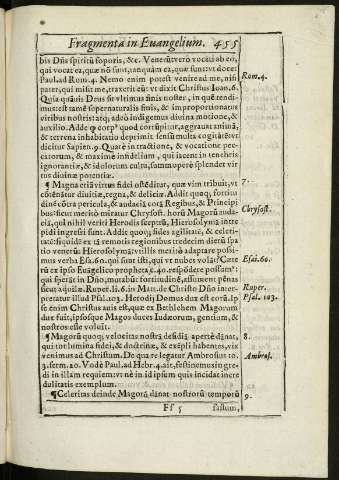 Fragmenta in Euangelium. 455
bis Dñs spiritũ soporis, &c. Venerũt verò vocati ab eo,
qui vocat ea, quæ nõ sunt, tanquàm ea, quæ sunt: vt docet
Paul. ad Rom. 4. Nemo enim potest venire ad me, nisi
Rom. 4.
pater, qui misit me, traxerit eũ: vt dixit Christus Ioan. 6.
Quia quãuis Deus sit vltimus finis noster, in quẽ tendi-
mus: est tamẽ supernaturalis finis, & improportionatus
viribus nostris: atq; adeò indigemus diuina motione, &
auxilio. Adde q corp⁹ quod corrũpitur, aggrauat animã,
& terrena inhabitatio deprimit sensũ multa cogitãtẽ: vt
dicitur Sapien. 9. Quare in tractione, & vocatione pec-
catorum, & maximè infidelium, qui iacent in tenebris
ignorantiæ, & idolorum cultu, summopere splendet vir
tus diuinæ potentiæ.
¶ Magna etiã virtus fidei ostẽditur, quæ vim tribuit, vt
7.
cõtẽnãt diuitias, regna, & delicias. Addit quoq; fortitu
dinẽ cõtra pericula, & audaciã corã Regibus, & Principi
bus: sicut meritò miratur Chrysost. horũ Magorũ auda-
Chrysost.
ciã, qui nihil veriti Herodis sceptrũ, Hierosolymã intre
pidi ingressi sunt. Addit quoq; fides agilitatẽ, & celeri-
tatẽ: siquidẽ ex tã remotis regionibus tredecim dierũ spa
tio venerũt Hierosolymã: vt illis meritò adaptare possi-
mus verba Esa. 60. qui sunt isti, qui vt nubes volãt? Cæte
Esai. 60.
rũ ex ipso Euãgelico propheta, c. 40. respõdere possum⁹:
qui sperãt in Dño, mutabũt fortitudinẽ, assumẽt pẽnas
sicut aquilæ. Ruper. li. 6. in Matt. de Christo Dño inter-
Ruper.
pretatur illud Psal. 103. Herodij Domus dux est corũ. Ip
Psal. 103.
se enim Christus auis est, quæ ex Bethelem Magorum
dux fuit, ipsosque Magos duces Iudæorum, gentium, &
nostros esse voluit.
¶ Magorũ quoq; velocitas nostrã desidiã apertè dãnat,
8.
qui tot lumina fidei, & doctrinæ, & exẽpli habentes, vix
venimus ad Christum. De qua re legatur Ambrosius to.
Ambros.
3. serm. 20. Vnde Paul. ad Hebr. 4. ait, festinemus ingre
di in illam requiem: vt nè in id ipsum quis incidat incre
dulitatis exemplum.
¶ Celeritas deinde Magorũ dãnat nostrorũ temporũ
9.
Ff 5 fastum,